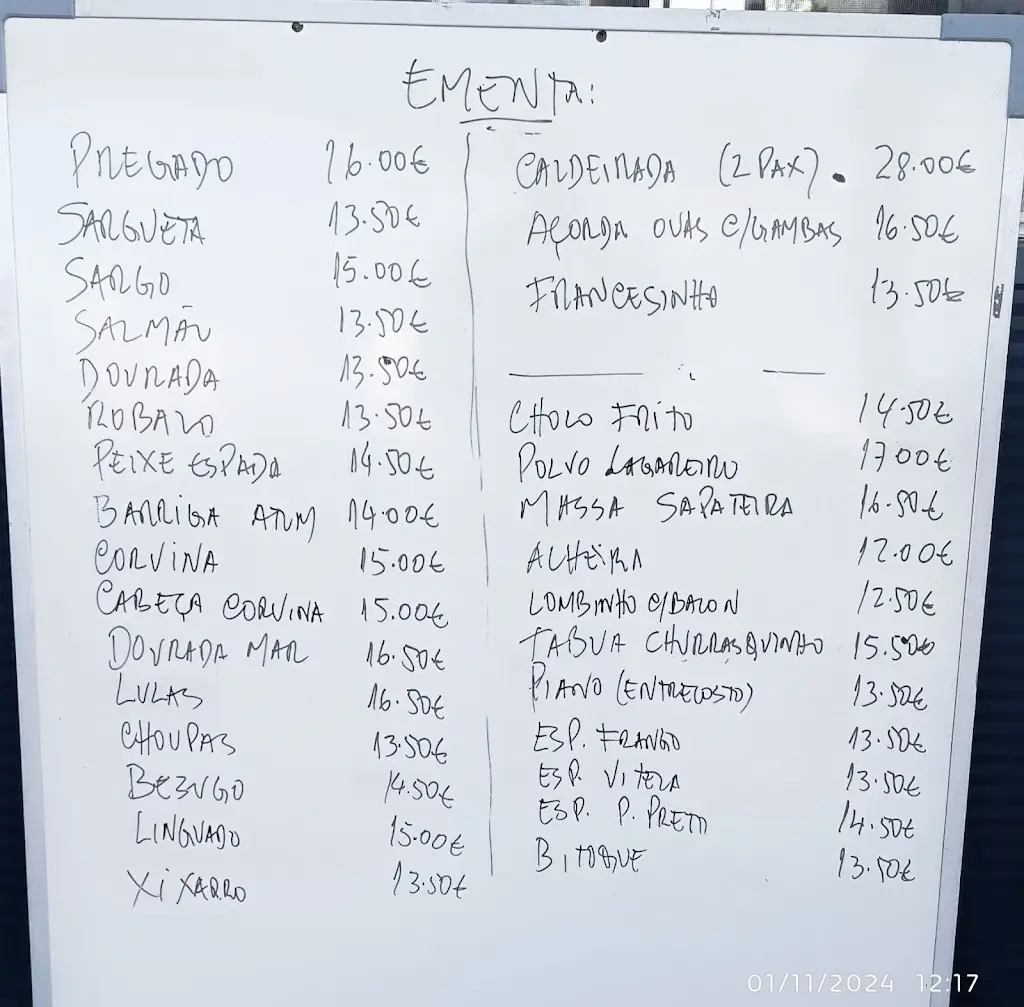 EMENTA:
PREGADO 16.00€
SARGUETA 13.50€
SARGO 15.00€
SALMÃO 13.50€
DOURADA 13.50€
ROBALO 13.50€
PEIXE ESPADA 14.50€
BARRIGA ATUM 14.00€
CORVINA 15.00€
CABEÇA CORVINA 15.00€
DOURADA MAR 16.50€
LULAS 16.50€
CHOUPAS 13.50€
BEZUGO 14.50€
LINGUADO 15.00€
XIXARRO 13.50€
CALDEIRADA (2 PAX). 28.00€
AÇORDA OVAS C/GAMBAS 16.50€
FRANCESINHA 13.50€
CHOCO FRITO 14.50€
POLVO LAGAREIRO 17 00€
MASSA SAPATEIRA 16.50€
ALHEIRA 12.00€
LOMBINHO C/BACON 12.50€
TABUA CHURRASQUINHO 15.50€
PIANO (ENTRECOSTO) 13.50€
ESP. FRANGO 13.50€
ESP. VITELA 13.50€
ESP. P. PRETO 14.50€
BITOQUE 13.50€
01/11/2024 12:17